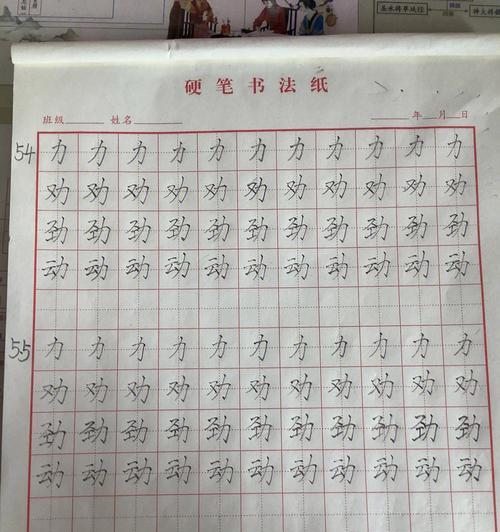 硬笔书法纸
班级 姓名 年 月 日
54 力 力 力 力 力 力 力 力 力 力 力
劝 劝 劝 劝 劝 劝 劝 劝 劝 劝 劝
劲 劲 劲 劲 劲 劲 劲 劲 劲 劲 劲
动 动 动 动 动 动 动 动 动 动 动
55 力 力 力 力 力 力 力 力 力 力 力
劝 劝 劝 劝 劝 劝 劝 劝 劝 劝 劝
劲 劲 劲 劲 劲 劲 劲 劲 劲 劲 劲
动 动 动 动 动 动 动 动 动 动 动